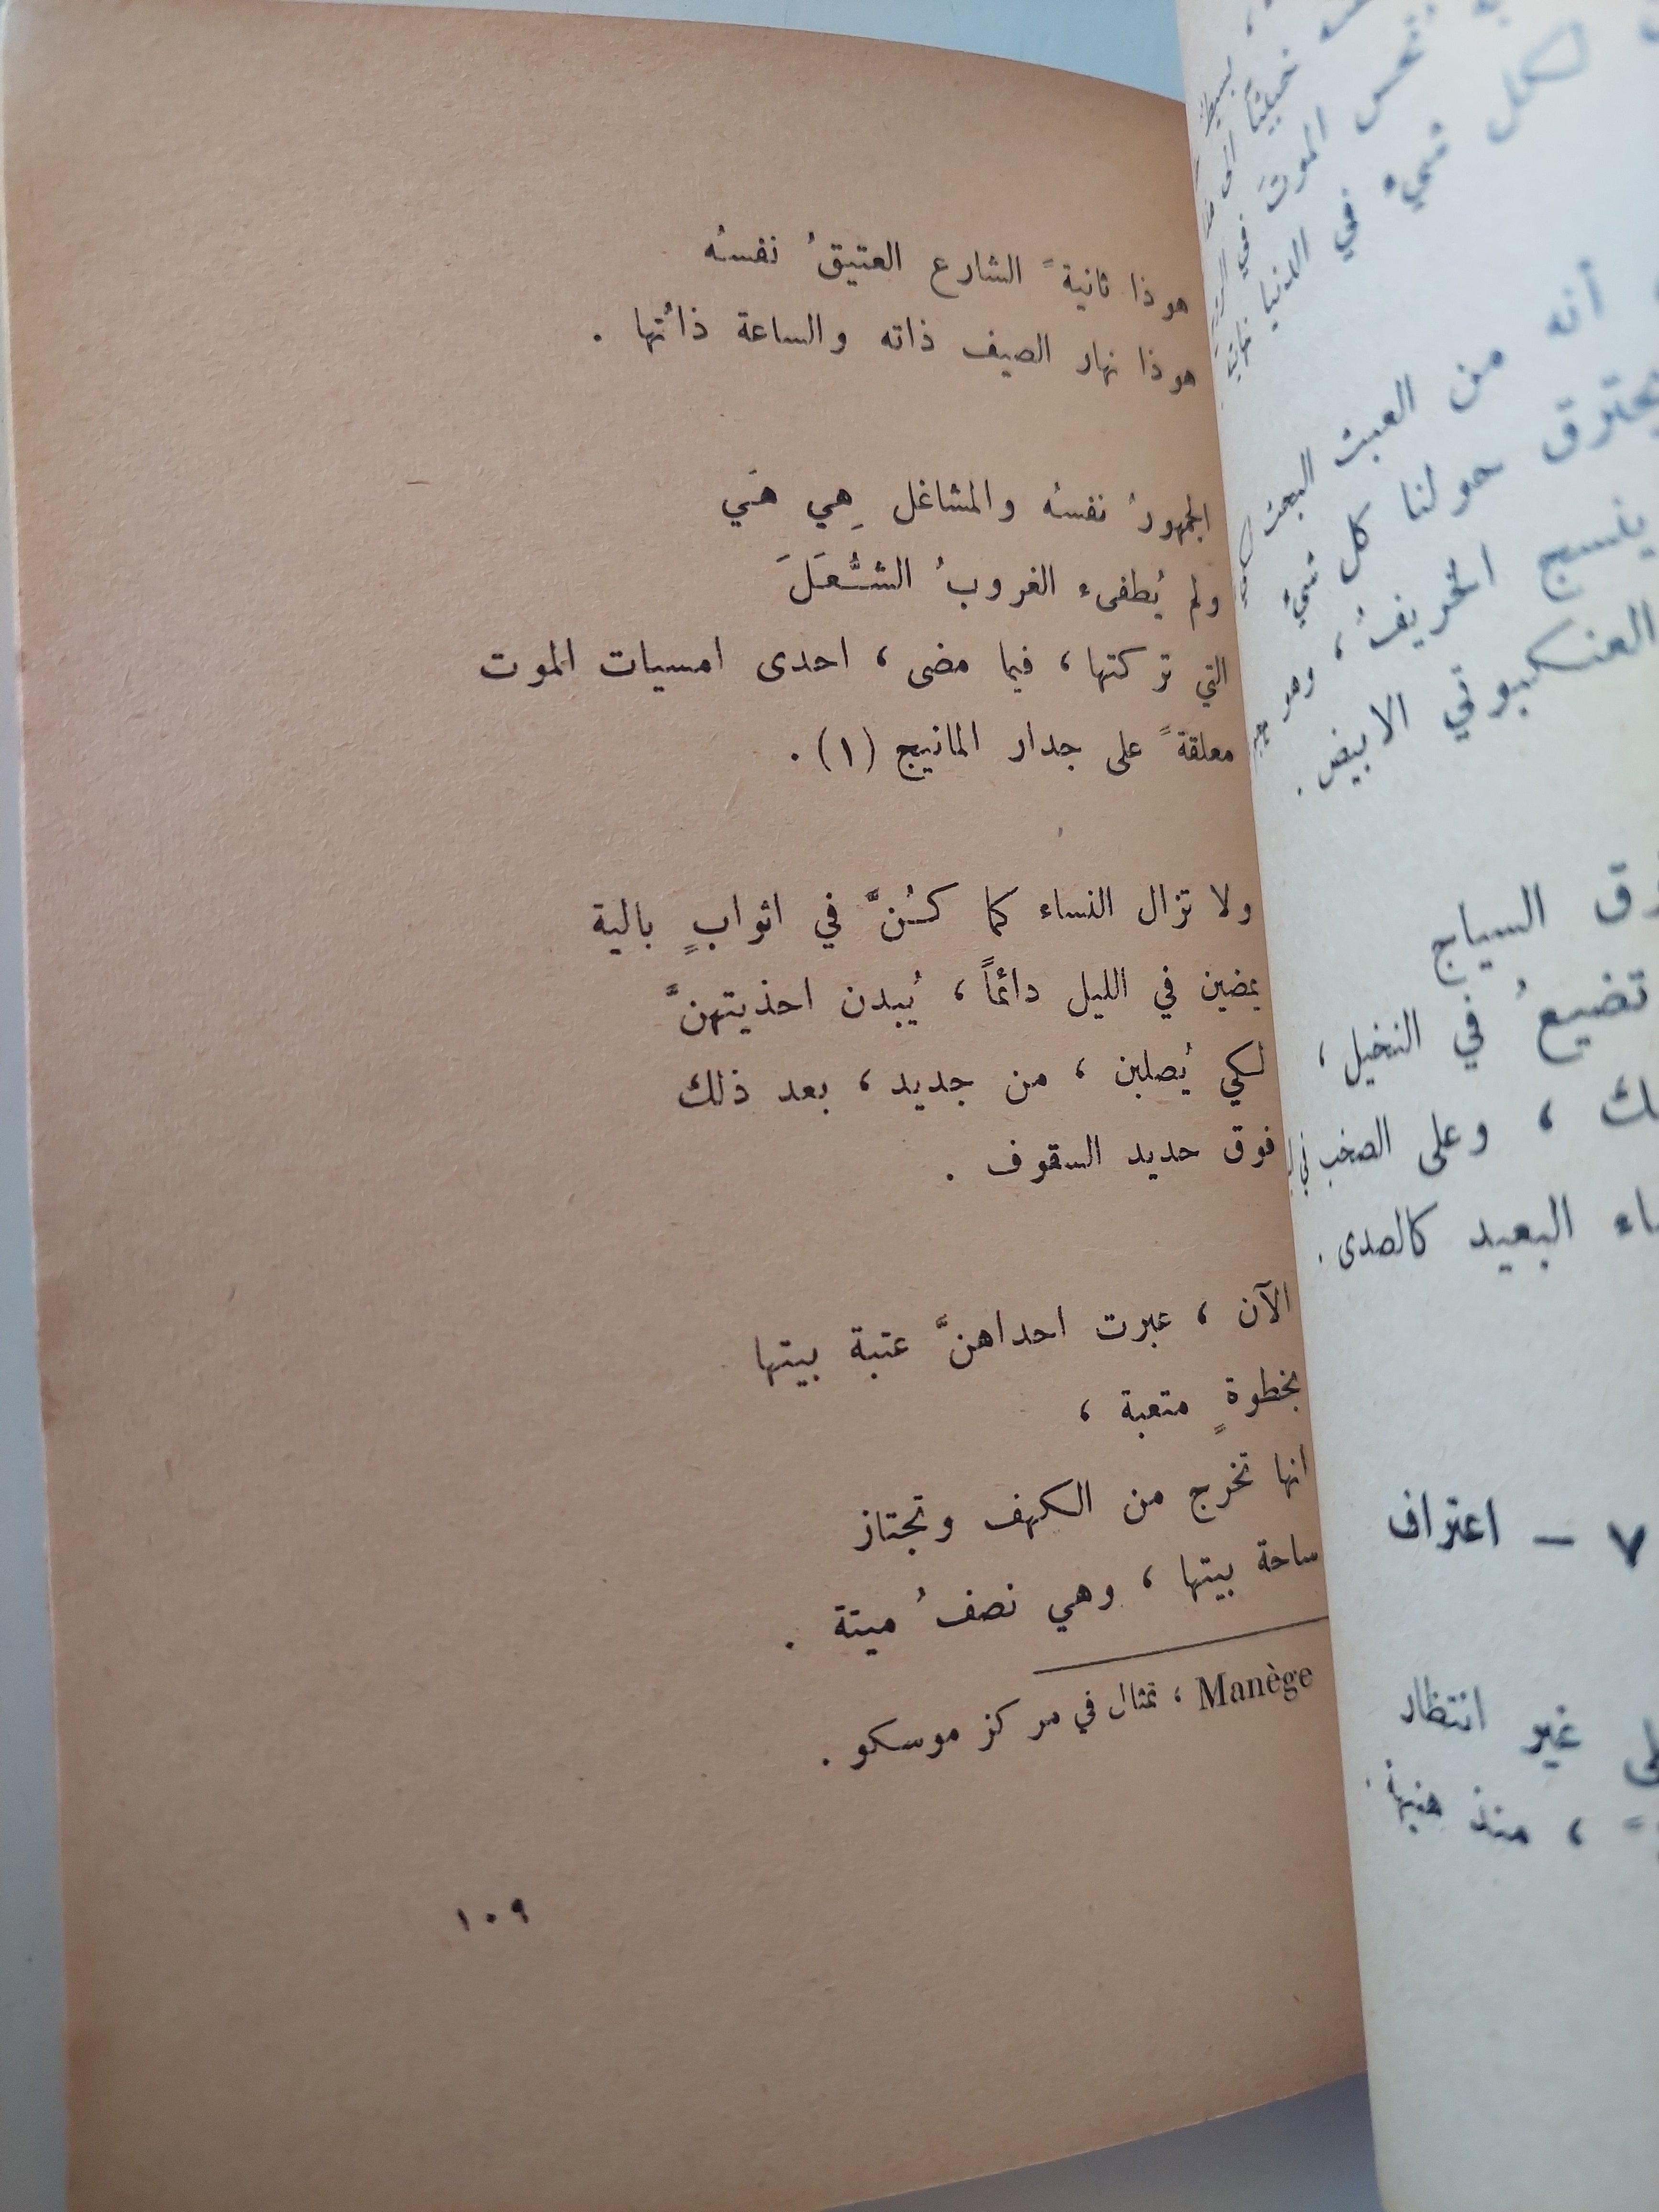 هوذا ثانيةً الشارع العتيقُ نفسُه
هوذا نهار الصيف ذاته والساعة ذاتُها .
الجمهورُ نفسُه والمشاغل هِي هَي
ولم يُطفىء الغروبُ الشُّعَلَ
التي تركتها ، فيما مضى ، احدى امسيات الموت
معلقةً على جدار المانيج (١) .
ولا تزال النساء كما كُنَّ في اثوابٍ بالية
يمضين في الليل دائماً ، يُبدن احذيتهنَّ
لكي يُصلبن ، من جديد ، بعد ذلك
فوق حديد السقوف .
الآن ، عبرت احداهنَّ عتبة بيتها
بخطوةٍ متعبة ،
انها تخرج من الكهف وتجتاز
ساحة بيتها ، وهي نصفُ ميتة .
Manège ، تمثال في مركز موسكو .
١٠٩
لكل شيء في الدنيا
أنه من العبث البحث
يحترق حولنا كل شيء
ينسج الخريفُ ، وهو
العنكبوتي الابيض .
السياج
تضيعُ في النخيل ،
وعلى الصخب في
البعيد كالصدى .
٧ – اعتراف
غير انتظار
، منذ هنيهة .